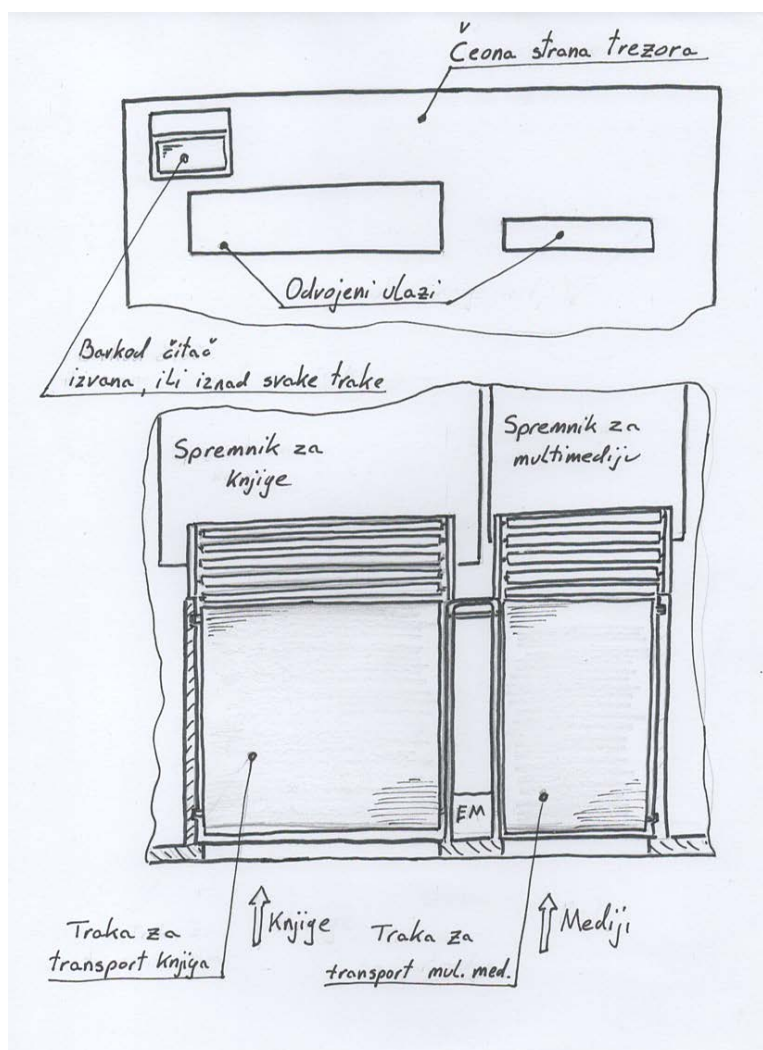 Čeona strana trezora
Odvojeni ulazi
Barkod čitač
izvana, ili iznad svake trake
Spremnik za
knjige
Spremnik za
multimediju
EM
Traka za
transport knjiga
Knjige
Traka za
transport mul. med.
Mediji